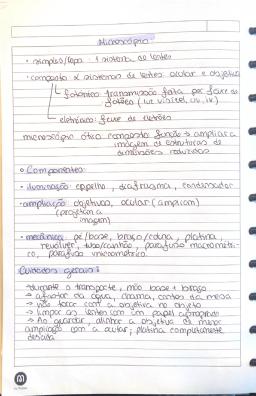 Microscópio:
• simples/lupa: 1 sistema de lentes
• composto: 2 sistemas de lentes: ocular e objetiva
↳ fotônico: transmissão feita por feixe de
fótons (luz visível, UV, IV)
↳ eletrônico: feixe de elétrons
microscópio ótico composto: função → ampliar a
imagem de estruturas de
dimensões reduzidas
• Componentes:
• iluminação: espelho, diafragma, condensador
• ampliação: objetivas, ocular (ampliam)
(projetam a
imagem)
• mecânico: pé/base, braço/coluna, platina,
revólver, tubo/canhão, parafuso macrométri-
co, parafuso micrométrico.
Cuidados gerais:
→ durante o transporte, mão base + braço
→ afastar da água, chama, cantos da mesa
→ não tocar com a objetiva no objeto
→ limpar as lentes com um papel apropriado
→ Ao guardar, alinhar a objetiva de menor
ampliação com a ocular; platina completamente